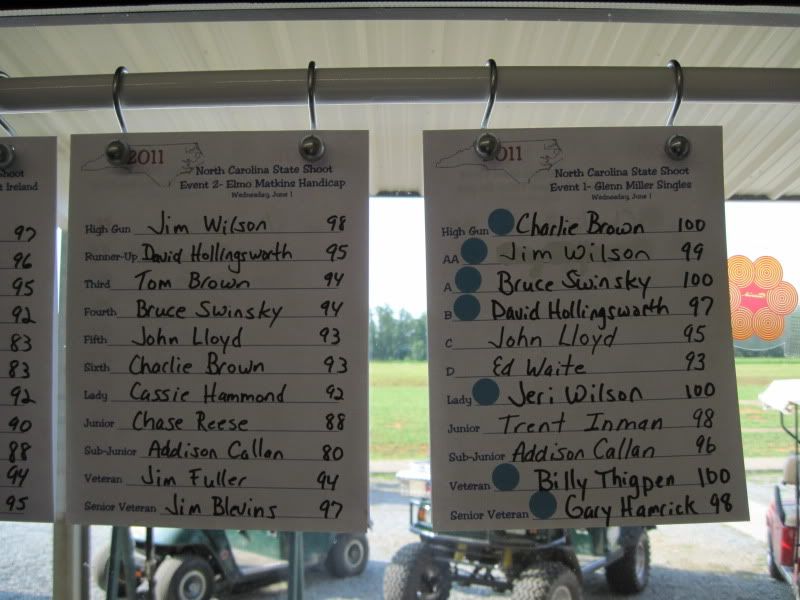 Shoot
t Ireland
97
96
95
92
83
83
92
90
88
94
95
2011
North Carolina State Shoot
Event 2- Elmo Matkins Handicap
Wednesday, June 1
High Gun Jim Wilson 98
Runner-Up David Hollingsworth 95
Third Tom Brown 94
Fourth Bruce Swinsky 94
Fifth John Lloyd 93
Sixth Charlie Brown 93
Lady Cassie Hammond 92
Junior Chase Reese 88
Sub-Junior Addison Callan 80
Veteran Jim Fuller 94
Senior Veteran Jim Blevins 97
011
North Carolina State Shoot
Event 1- Glenn Miller Singles
Wednesday, June 1
High Gun Charlie Brown 100
AA Jim Wilson 99
A Bruce Swinsky 100
B David Hollingsworth 97
C John Lloyd 95
D Ed Waite 93
Lady Jeri Wilson 100
Junior Trent Inman 98
Sub-Junior Addison Callan 96
Veteran Billy Thigpen 100
Senior Veteran Gary Hamrick 98